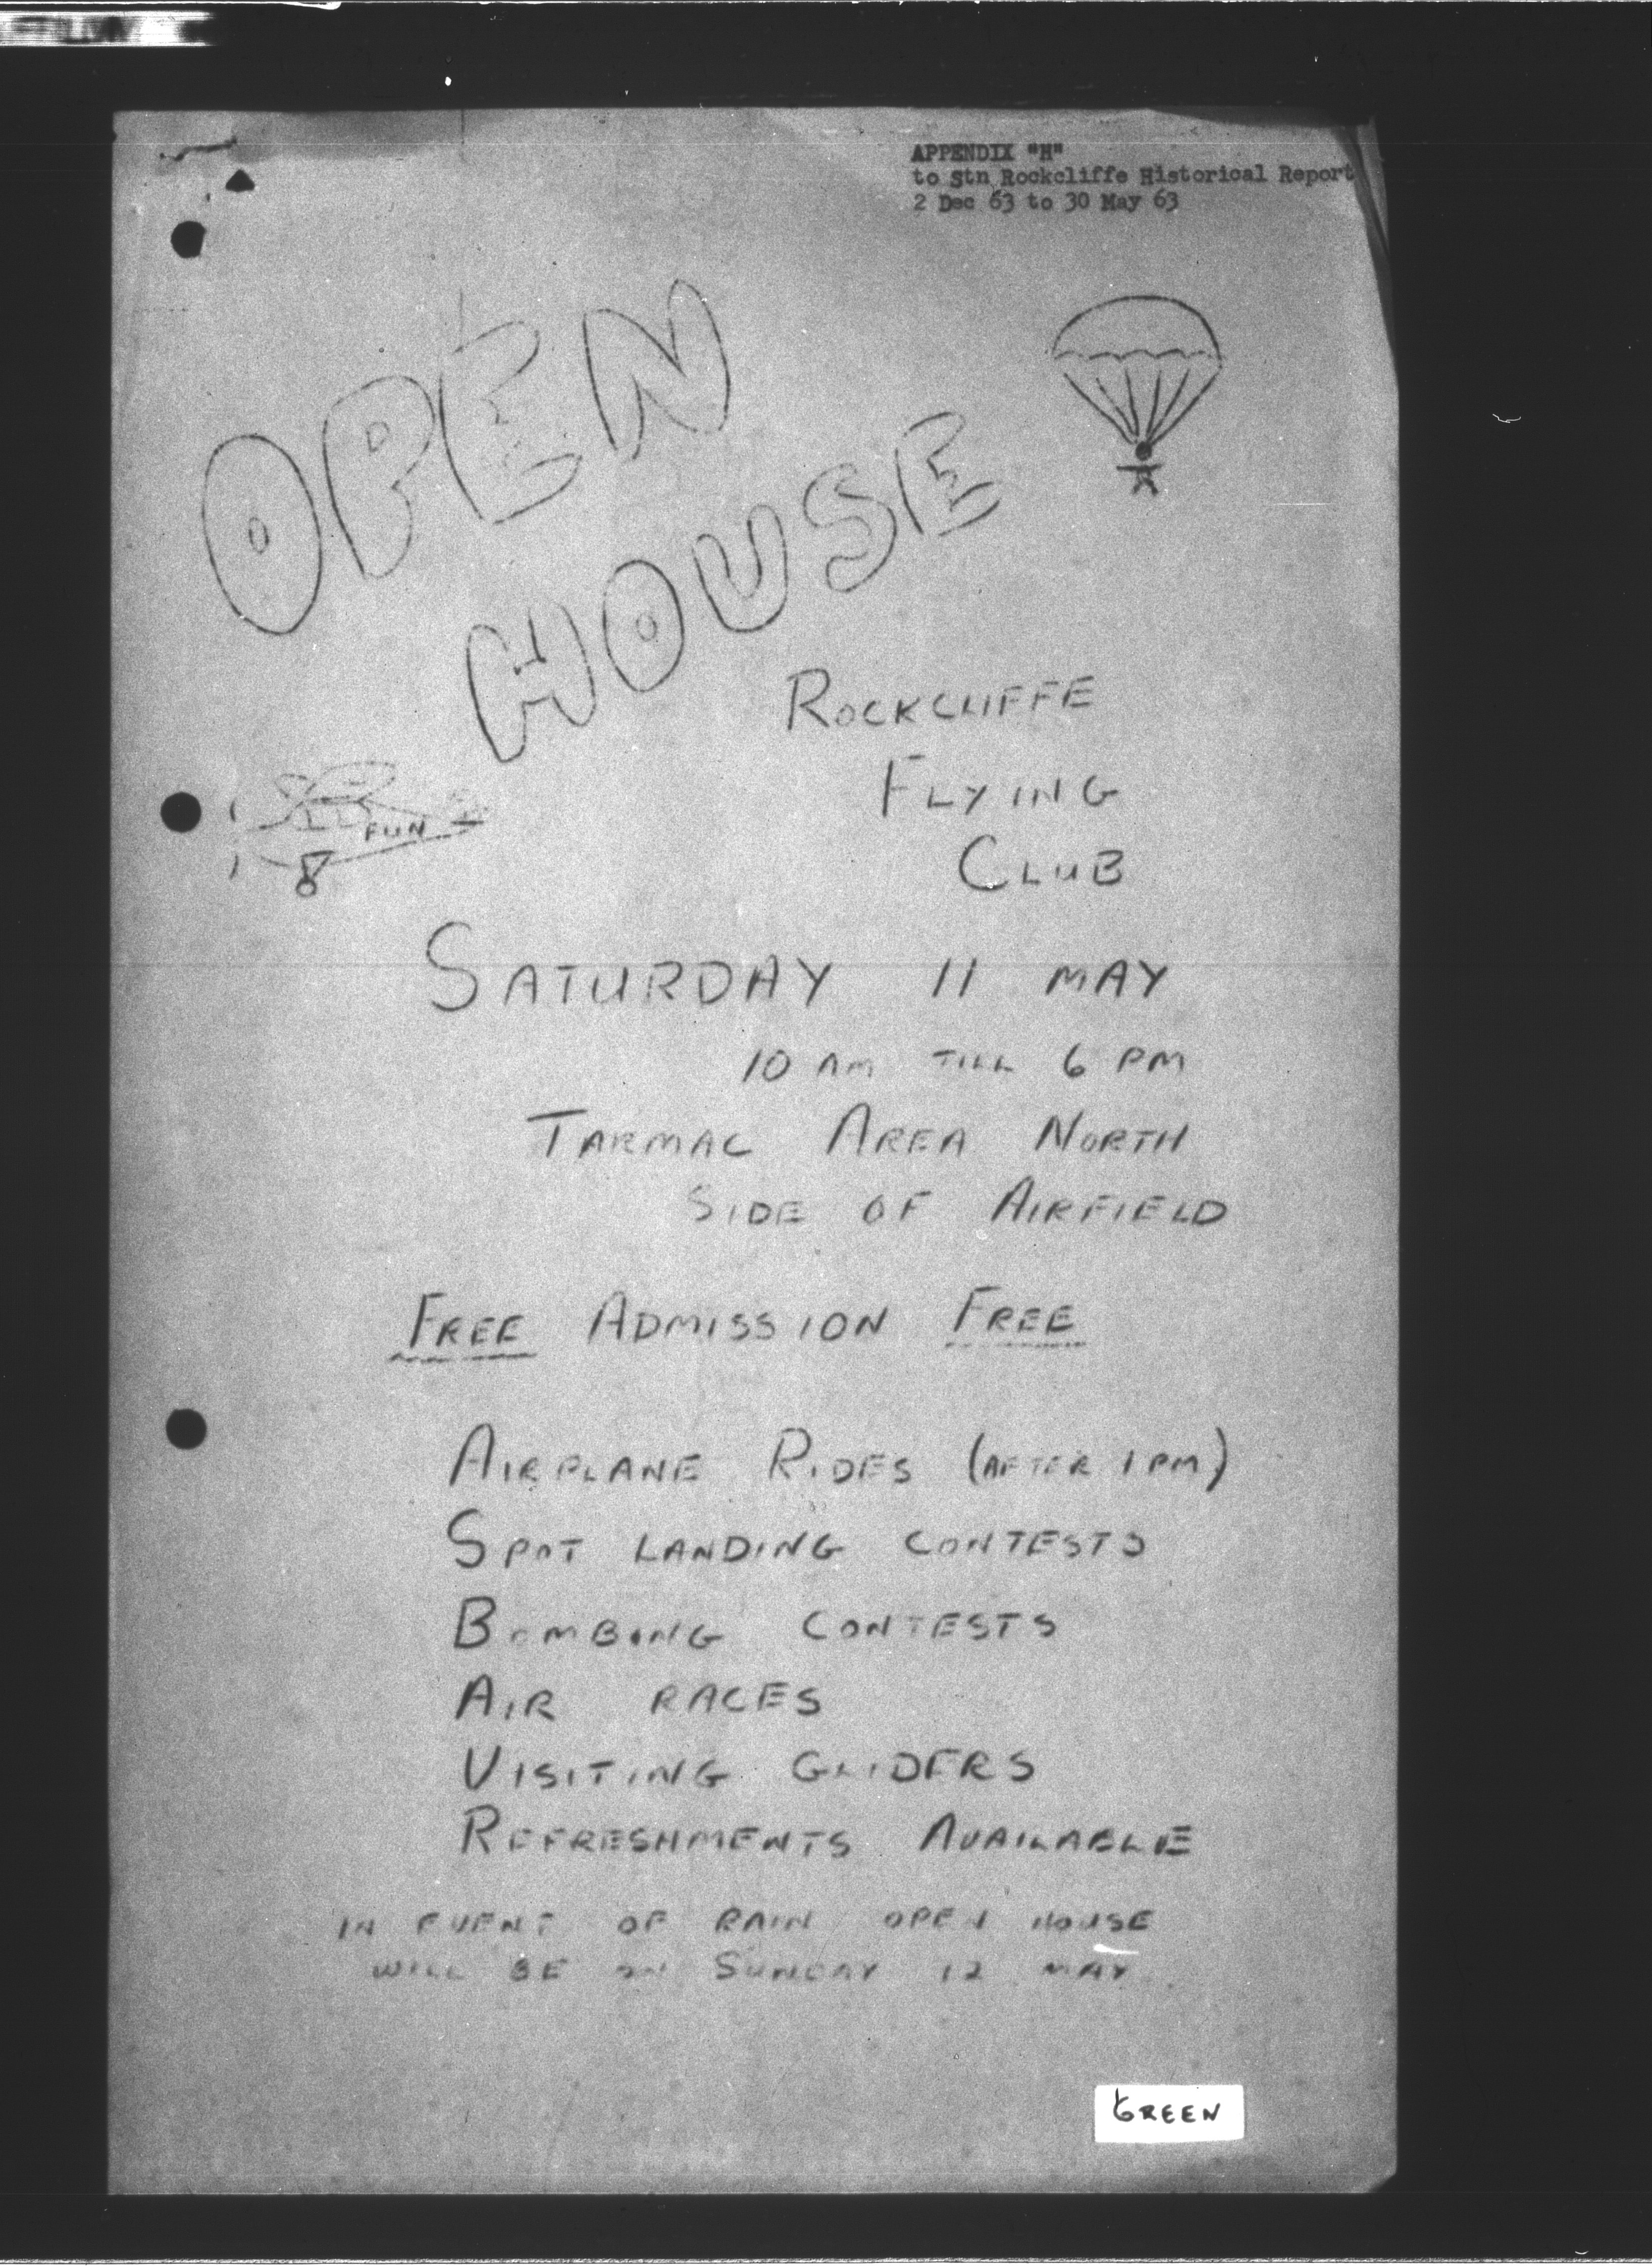 APPENDIX "H"
to Stn Rockcliffe Historical Report
2 Dec 63 to 30 May 63
OPEN
HOUSE
ROCKCLIFFE
FLYING
CLUB
FUN
SATURDAY 11 MAY
10 AM TILL 6 PM
TARMAC AREA NORTH
SIDE OF AIRFIELD
FREE ADMISSION FREE
AIRPLANE RIDES (AFTER 1 PM)
SPOT LANDING CONTESTS
BOMBING CONTESTS
AIR RACES
VISITING GLIDERS
REFRESHMENTS AVAILABLE
IN EVENT OF RAIN OPEN HOUSE
WILL BE ON SUNDAY 12 MAY
GREEN